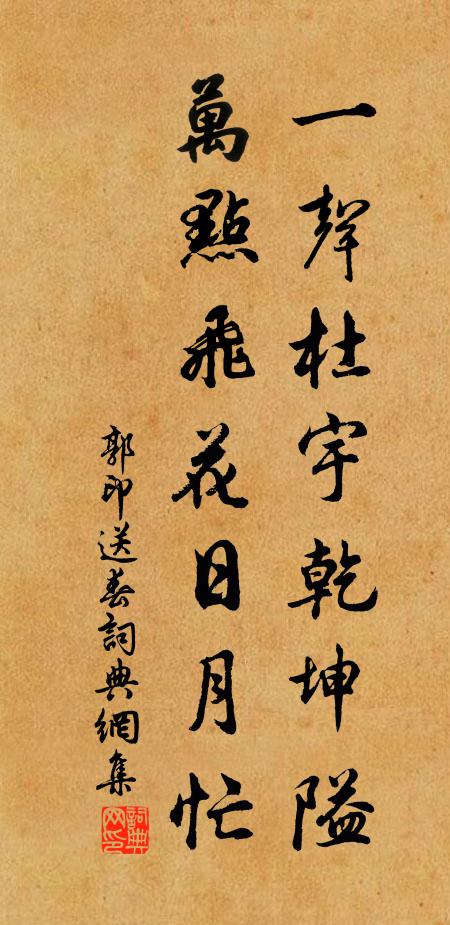 一聲杜宇乾坤隘
萬點飛花日月忙
郭印送春詞典網集
詞典網印